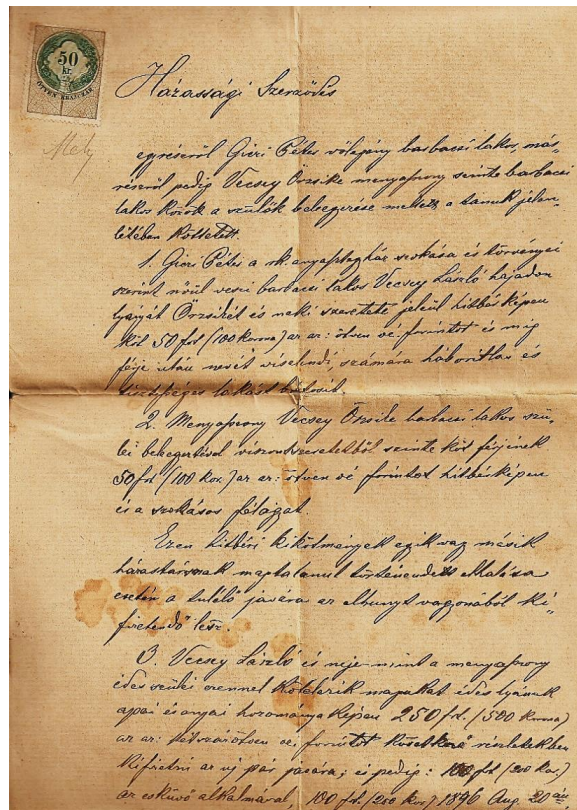 50
kr.
ÖTVEN KRAJCZÁR
Házassági Szerződés
egyrészről Giczi Péter vőlegény barbacsi lakos, más,
részről pedig Vecsey Örzsike menyasszony szinte barbacsi
lakos között a szülők beleegyezése mellett, a tanuk jelen,
létében köttetett.
1. Giczi Péter a rk. anyaszentegyház szokása és törvényei
szerint nőül veszi barbacsi lakos Vecsey László hajadon
lyányát Örzsikét és neki szeretete jeléül hitbérképen
köt 50 frt (100 korona) az az: ötven o é. forintot és míg
férje után nevét viselendi, számára háborítlan és
tisztességes lakást biztosít.
2. Menyasszony Vecsey Örzsike barbacsi lakos szü,
lei beleegyezésével viszontszeretetből szinte köt férjének
50 frt (100 kor.) az az: ötven o é forintot hitbérképen
és a szokásos félágyat.
Ezen hitbéri kikötmények egyik vagy másik
házastársnak magtalanul történendett elhalása
esetén a túlélő javára az elhunyt vagyonából ki,
fizetendő lesz.
3. Vecsey László és neje mint a menyasszony
édes szülei ezennel kötelezik magukat édes lyányuk
apai és anyai hozománya képen 250 frt. (500 korona)
az az: kétszázötven o é. forintot következő részletekben
kifizetni az új pár javára; és pedig: 100 frt (200 kor.)
az esküvő alkalmával, 100 frt (200 kor.) 1896 Aug. 20 án